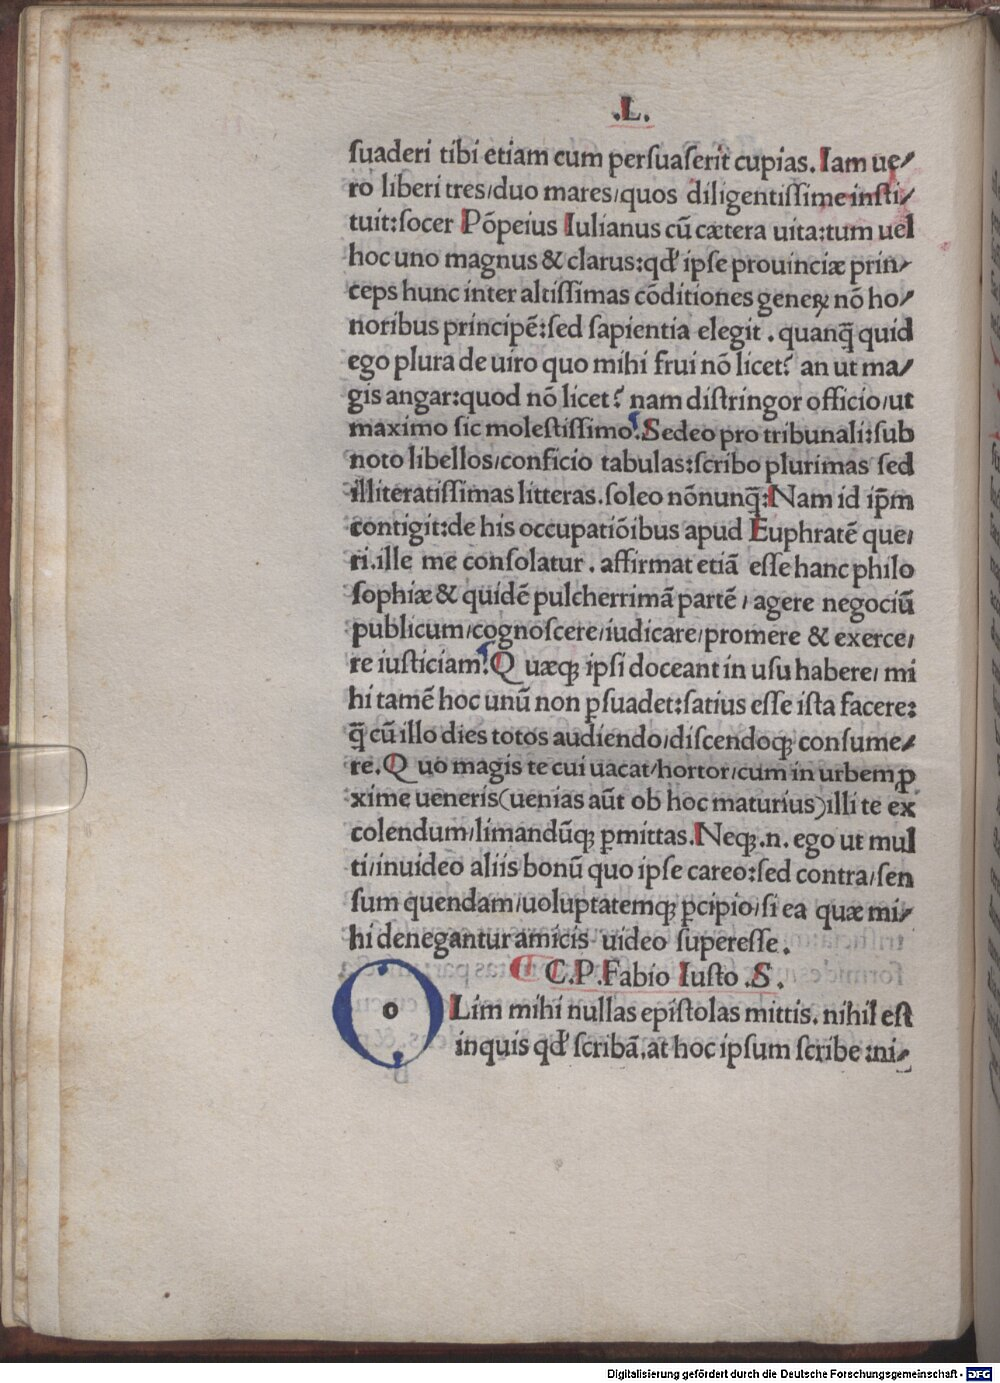 .L.
ſuaderi tibi etiam cum perſuaſerit cupias. Iam ue/
ro liberi tres/duo mares/quos diligentiſſime inſti/
tuit:ſocer Põpeius Iulianus cũ cætera uita:tum uel
hoc uno magnus & clarus:qđ ipſe prouinciæ prin/
ceps hunc inter altiſſimas cõditiones geneꝝ nõ ho/
noribus principẽ:ſed ſapientia elegit . quanq̃ quid
ego plura de uiro quo mihi frui nõ licet? an ut ma/
gis angar:quod nõ licet? nam diſtringor officio/ut
maximo ſic moleſtiſſimo. Sedeo pro tribunali:ſub
noto libellos/conficio tabulas:ſcribo plurimas ſed
illiteratiſſimas litteras.ſoleo nõnunq̃:Nam id ip̃m
contigit:de his occupatiõibus apud Euphratẽ que/
ri.ille me conſolatur . affirmat etiã eſſe hanc philo
ſophiæ & quidẽ pulcherrimã partẽ / agere negociũ
publicum/cognoſcere/iudicare/promere & exerce/
re iuſticiam:Q uæqꝫ ipſi doceant in uſu habere/ mi
hi tamẽ hoc unũ non ꝑſuadet:ſatius eſſe iſta facere:
q̃ cũ illo dies totos audiendo/diſcendoqꝫ conſume/
re. Q uo magis te cui uacat/hortor/cum in urbem ꝓ
xime ueneris(uenias aũt ob hoc maturius)illi te ex
colendum/limandũqꝫ ꝑmittas.Neqꝫ.n. ego ut mul
ti/inuideo aliis bonũ quo ipſe careo:ſed contra/ſen
ſum quendam/uoluptatemqꝫ ꝑcipio/ſi ea quæ mi/
hi denegantur amicis uideo ſupereſſe.
C.P.Fabio Iuſto .S.
O o Lim mihi nullas epiſtolas mittis. nihil eſt
inquis qđ ſcribã.at hoc ipſum ſcribe:ni/
Digitalisierung gefördert durch die Deutsche Forschungsgemeinschaft - DFG